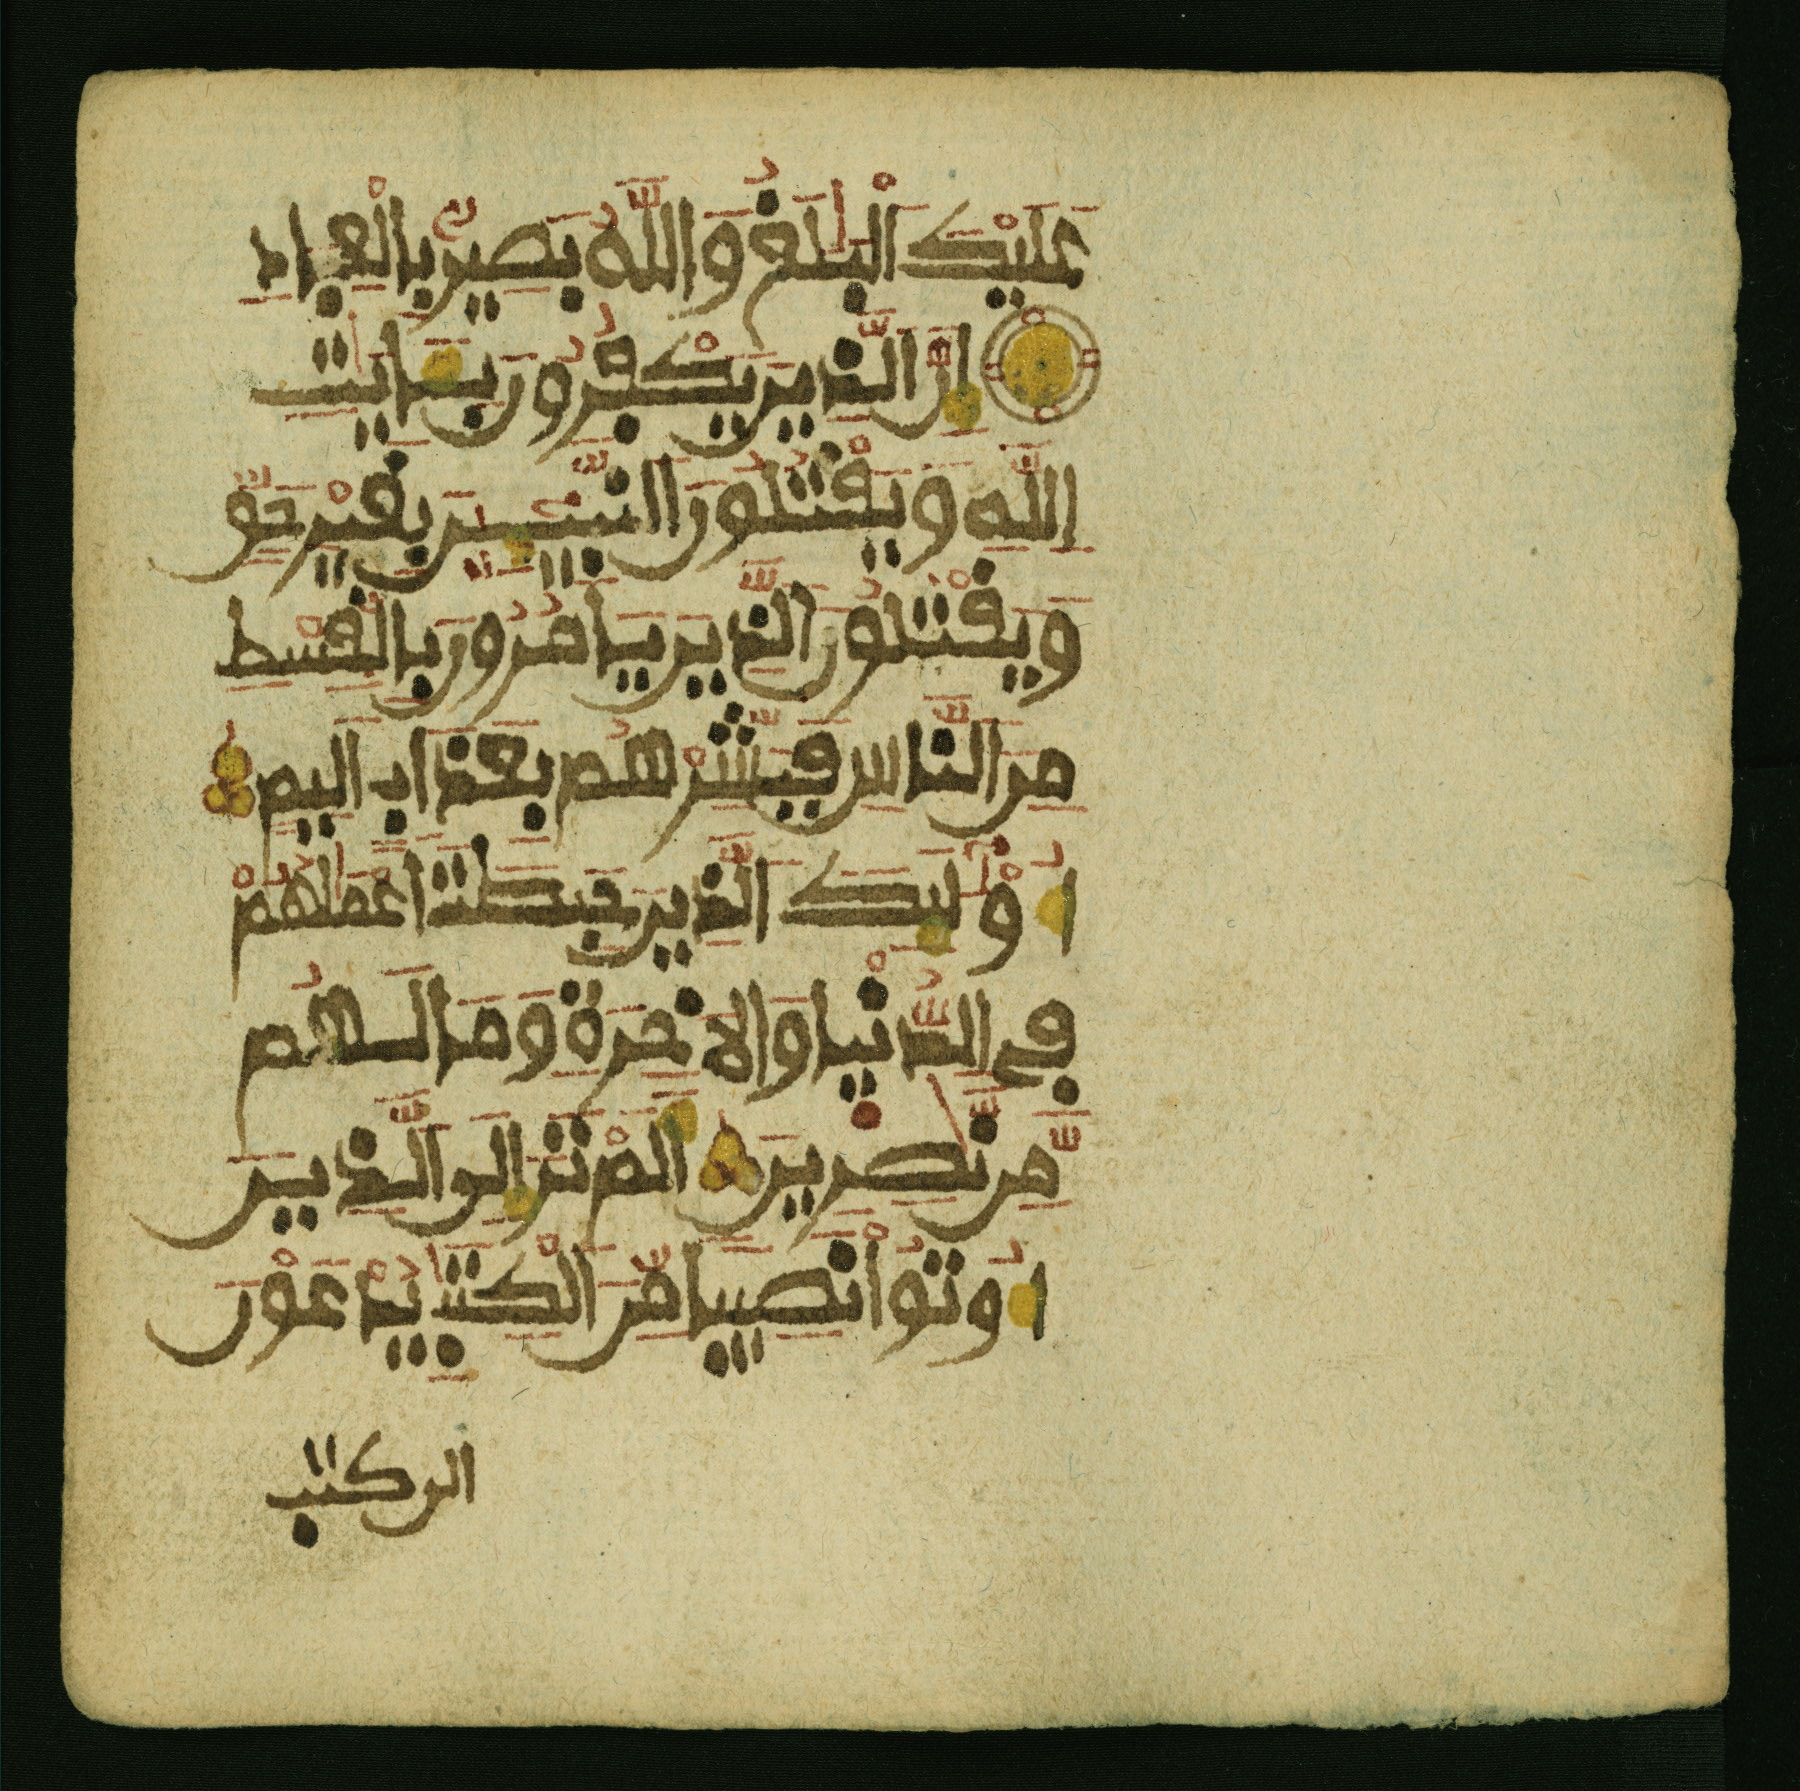 عَلَيْكَ ٱلْبَلَٰغُ وَٱللَّهُ بَصِيرٌۢ بِٱلْعِبَادِ
إِنَّ ٱلَّذِينَ يَكْفُرُونَ بِـَٔايَٰتِ
ٱللَّهِ وَيَقْتُلُونَ ٱلنَّبِيـِٕينَ بِغَيْرِ حَقٍّ
وَيَقْتُلُونَ ٱلَّذِينَ يَامُرُونَ بِٱلْقِسْطِ
مِنَ ٱلنَّاسِ فَبَشِّرْهُم بِعَذَابٍ اَلِيمٍ
أُوْلَٰٓئِكَ ٱلَّذِينَ حَبِطَتَ اَعْمَٰلُهُمْ
فِي ٱلدُّنْيَا وَٱلَاخِرَةِ وَمَا لَهُم
مِّن نَّٰصِرِينَ أَلَمْ تَرَ إِلَى ٱلَّذِينَ
أُوتُواْ نَصِيبًا مِّنَ ٱلْكِتَٰبِ يُدْعَوْنَ
إلى كتب